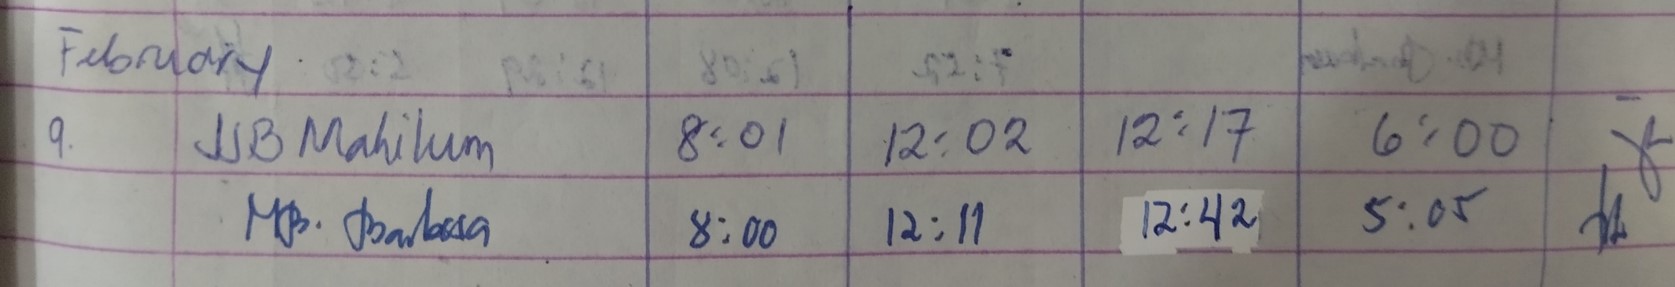 February
9. JJB Mahilum 8:01 12:02 12:17 6:00
MB. Barbosa 8:00 12:11 12:42 5:05